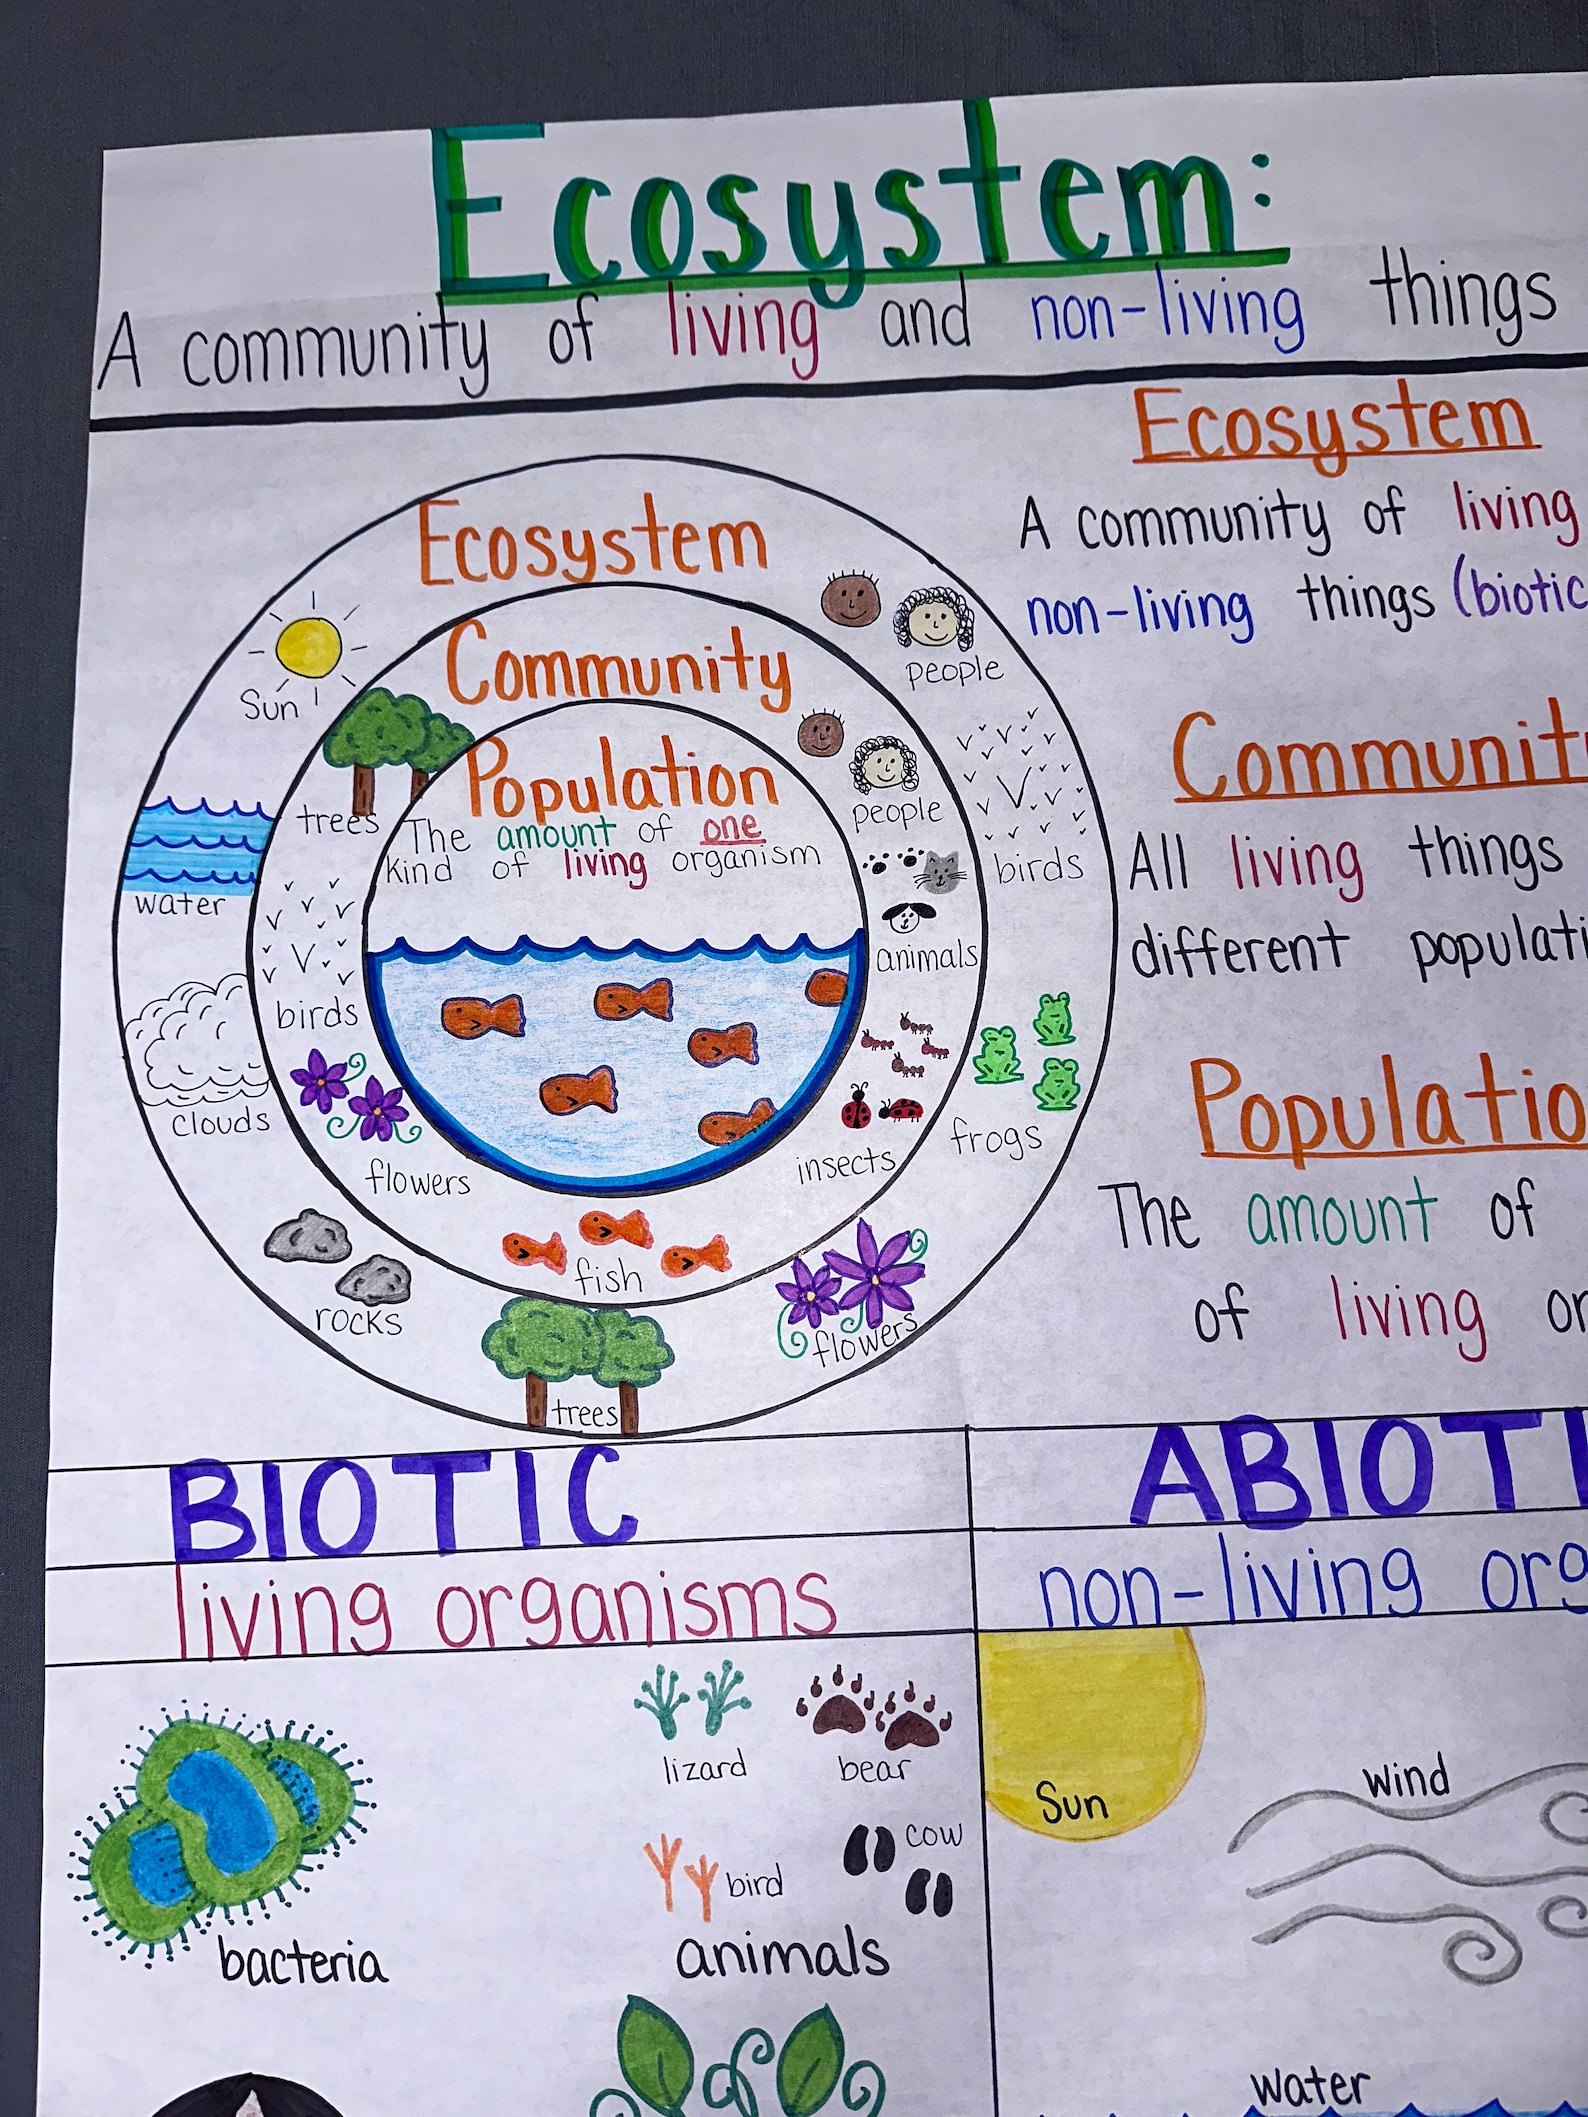 Ecosystem:
A community of living and non-living things
Ecosystem
Sun
people
water
birds
clouds
frogs
rocks
flowers
trees
Community
trees
people
birds
animals
flowers
insects
fish
Population
The amount of one
kind of living organism
Ecosystem
A community of living
non-living things (biotic
All living things
different
The amount of
of living
BIOTIC
living organisms
bacteria
lizard
bear
bird
cow
animals
non-living
Sun
wind
water